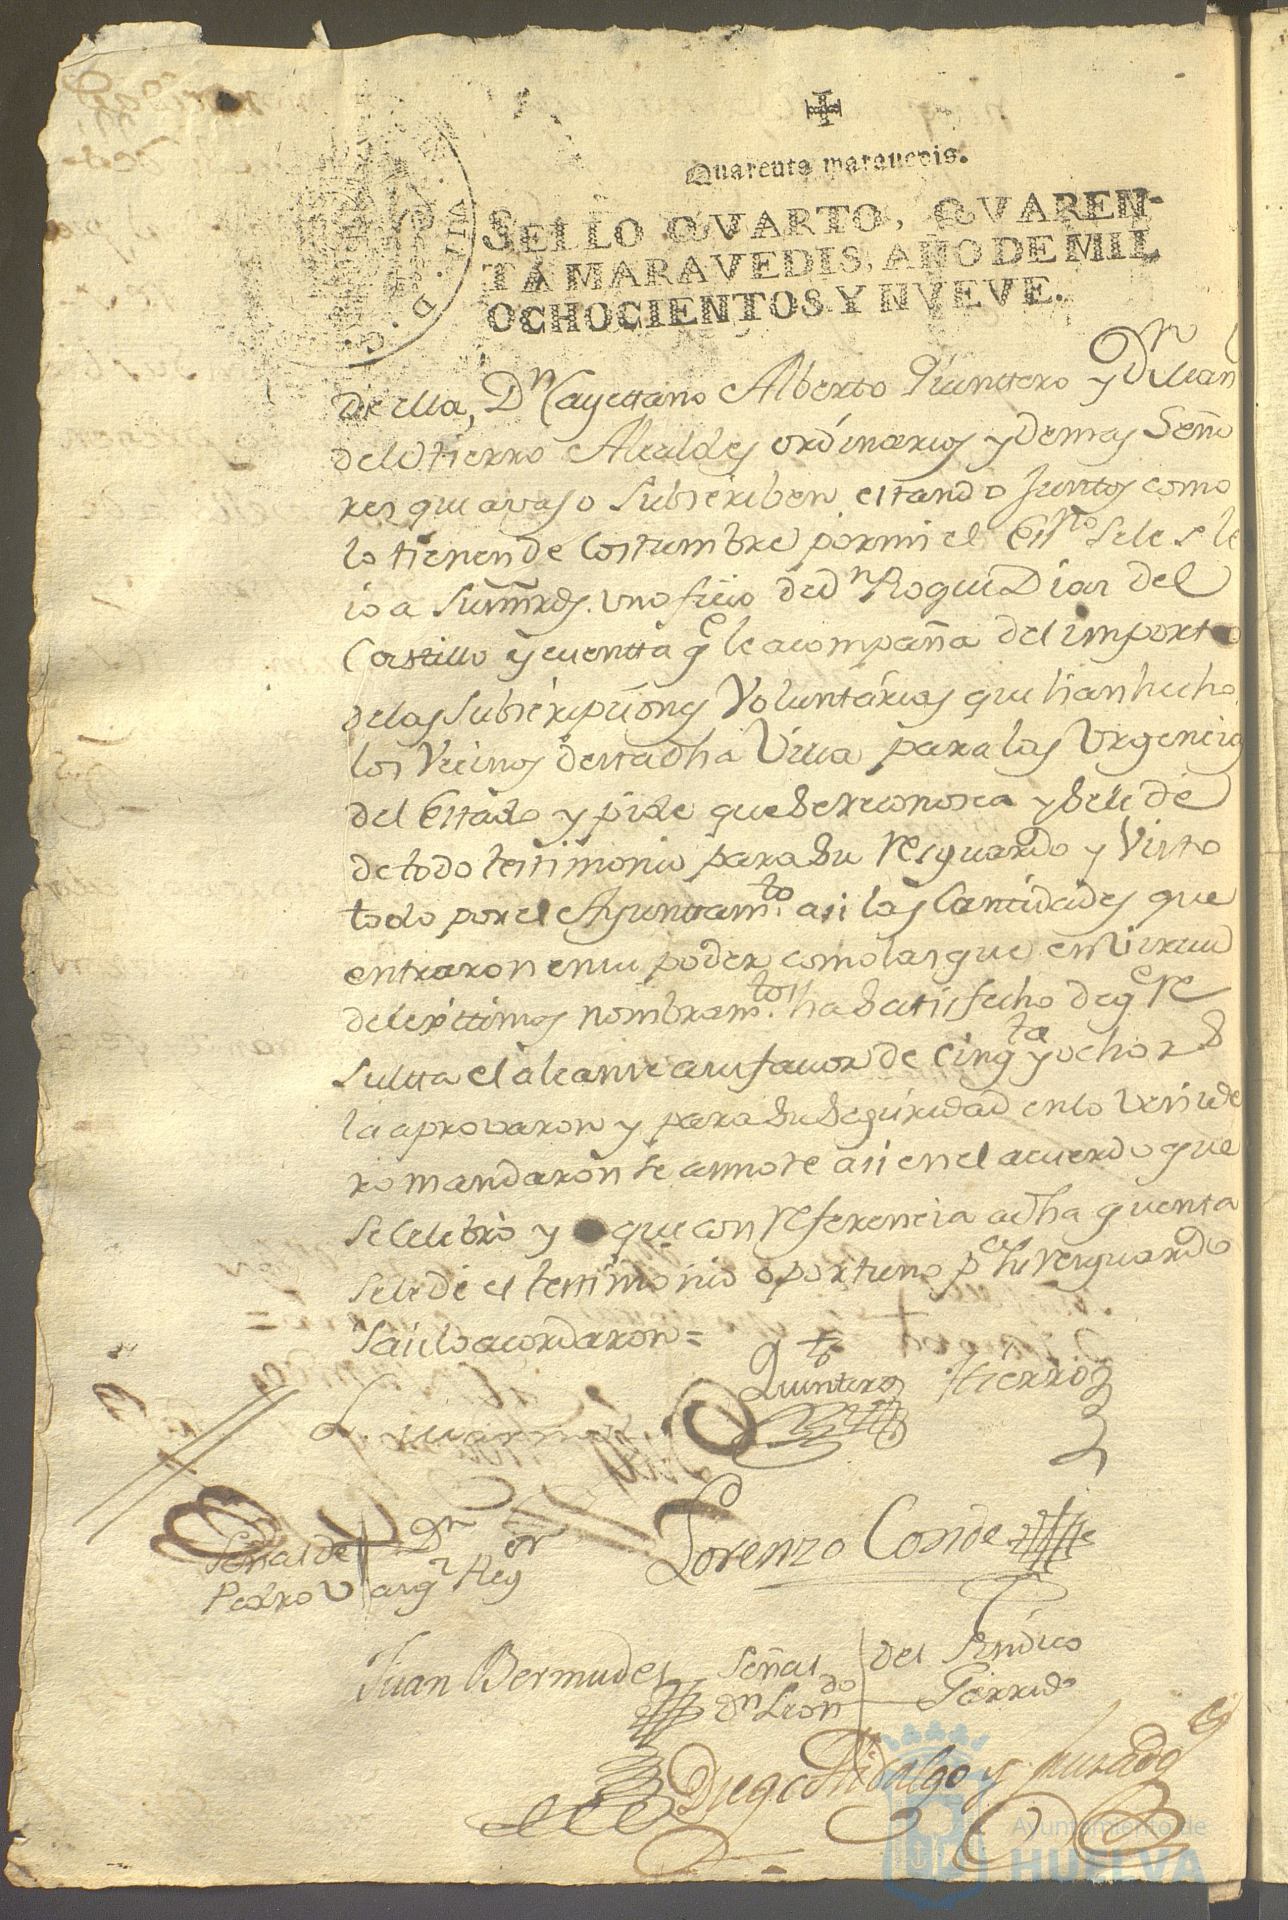 Quarenta maravedis.
SELLO QVARTO, QVAREN-
TA MARAVEDIS, AÑO DE MIL
OCHOCIENTOS Y NVEVE.
de ella, Dn Cayettano Alberto Quinttero y Dn Juan
del Hierro Alcaldes ordinarios y demas Seño
res que avaso Subscriben estando Juntos como
lo tienen de Costumbre por mi el Essno Se les le
io a Sus mrds. un oficio de dn Roque Dias del
Castillo y cuentta qe le acompaña del importe
de las Subscripciones Voluntarias que han hecho
los Vecinos desta dha Villa para las Urgencias
del Estado y pide que Se reconosca y Se le dé
de todo testimonio para Su resguardo y Visto
todo por el Ayunttamto. asi las Cantidades que
entraron en su poder como las que en Virtud
de lexittimos nombramtos. ha Satisfecho de qe re
sultta el alcanse a su favor de Cinqta y ocho rs
la aprovaron y para Su Seguridad en lo Venide
ro mandaron se annote asi en el acuerdo que
se Celebró y que con referencia a dha quenta
se le dé el testimonio oportuno pa Su resguardo
Y asi lo acordaron =
Quinttero Hierro
Lorenzo Conde
Señal de Dn
Pedro Vargs Regor
Juan Bermudes
Señal del Sindico
dn Leondo Garrido
Diego Hidalgo y Jurado
Ayuntamiento de
HUELVA